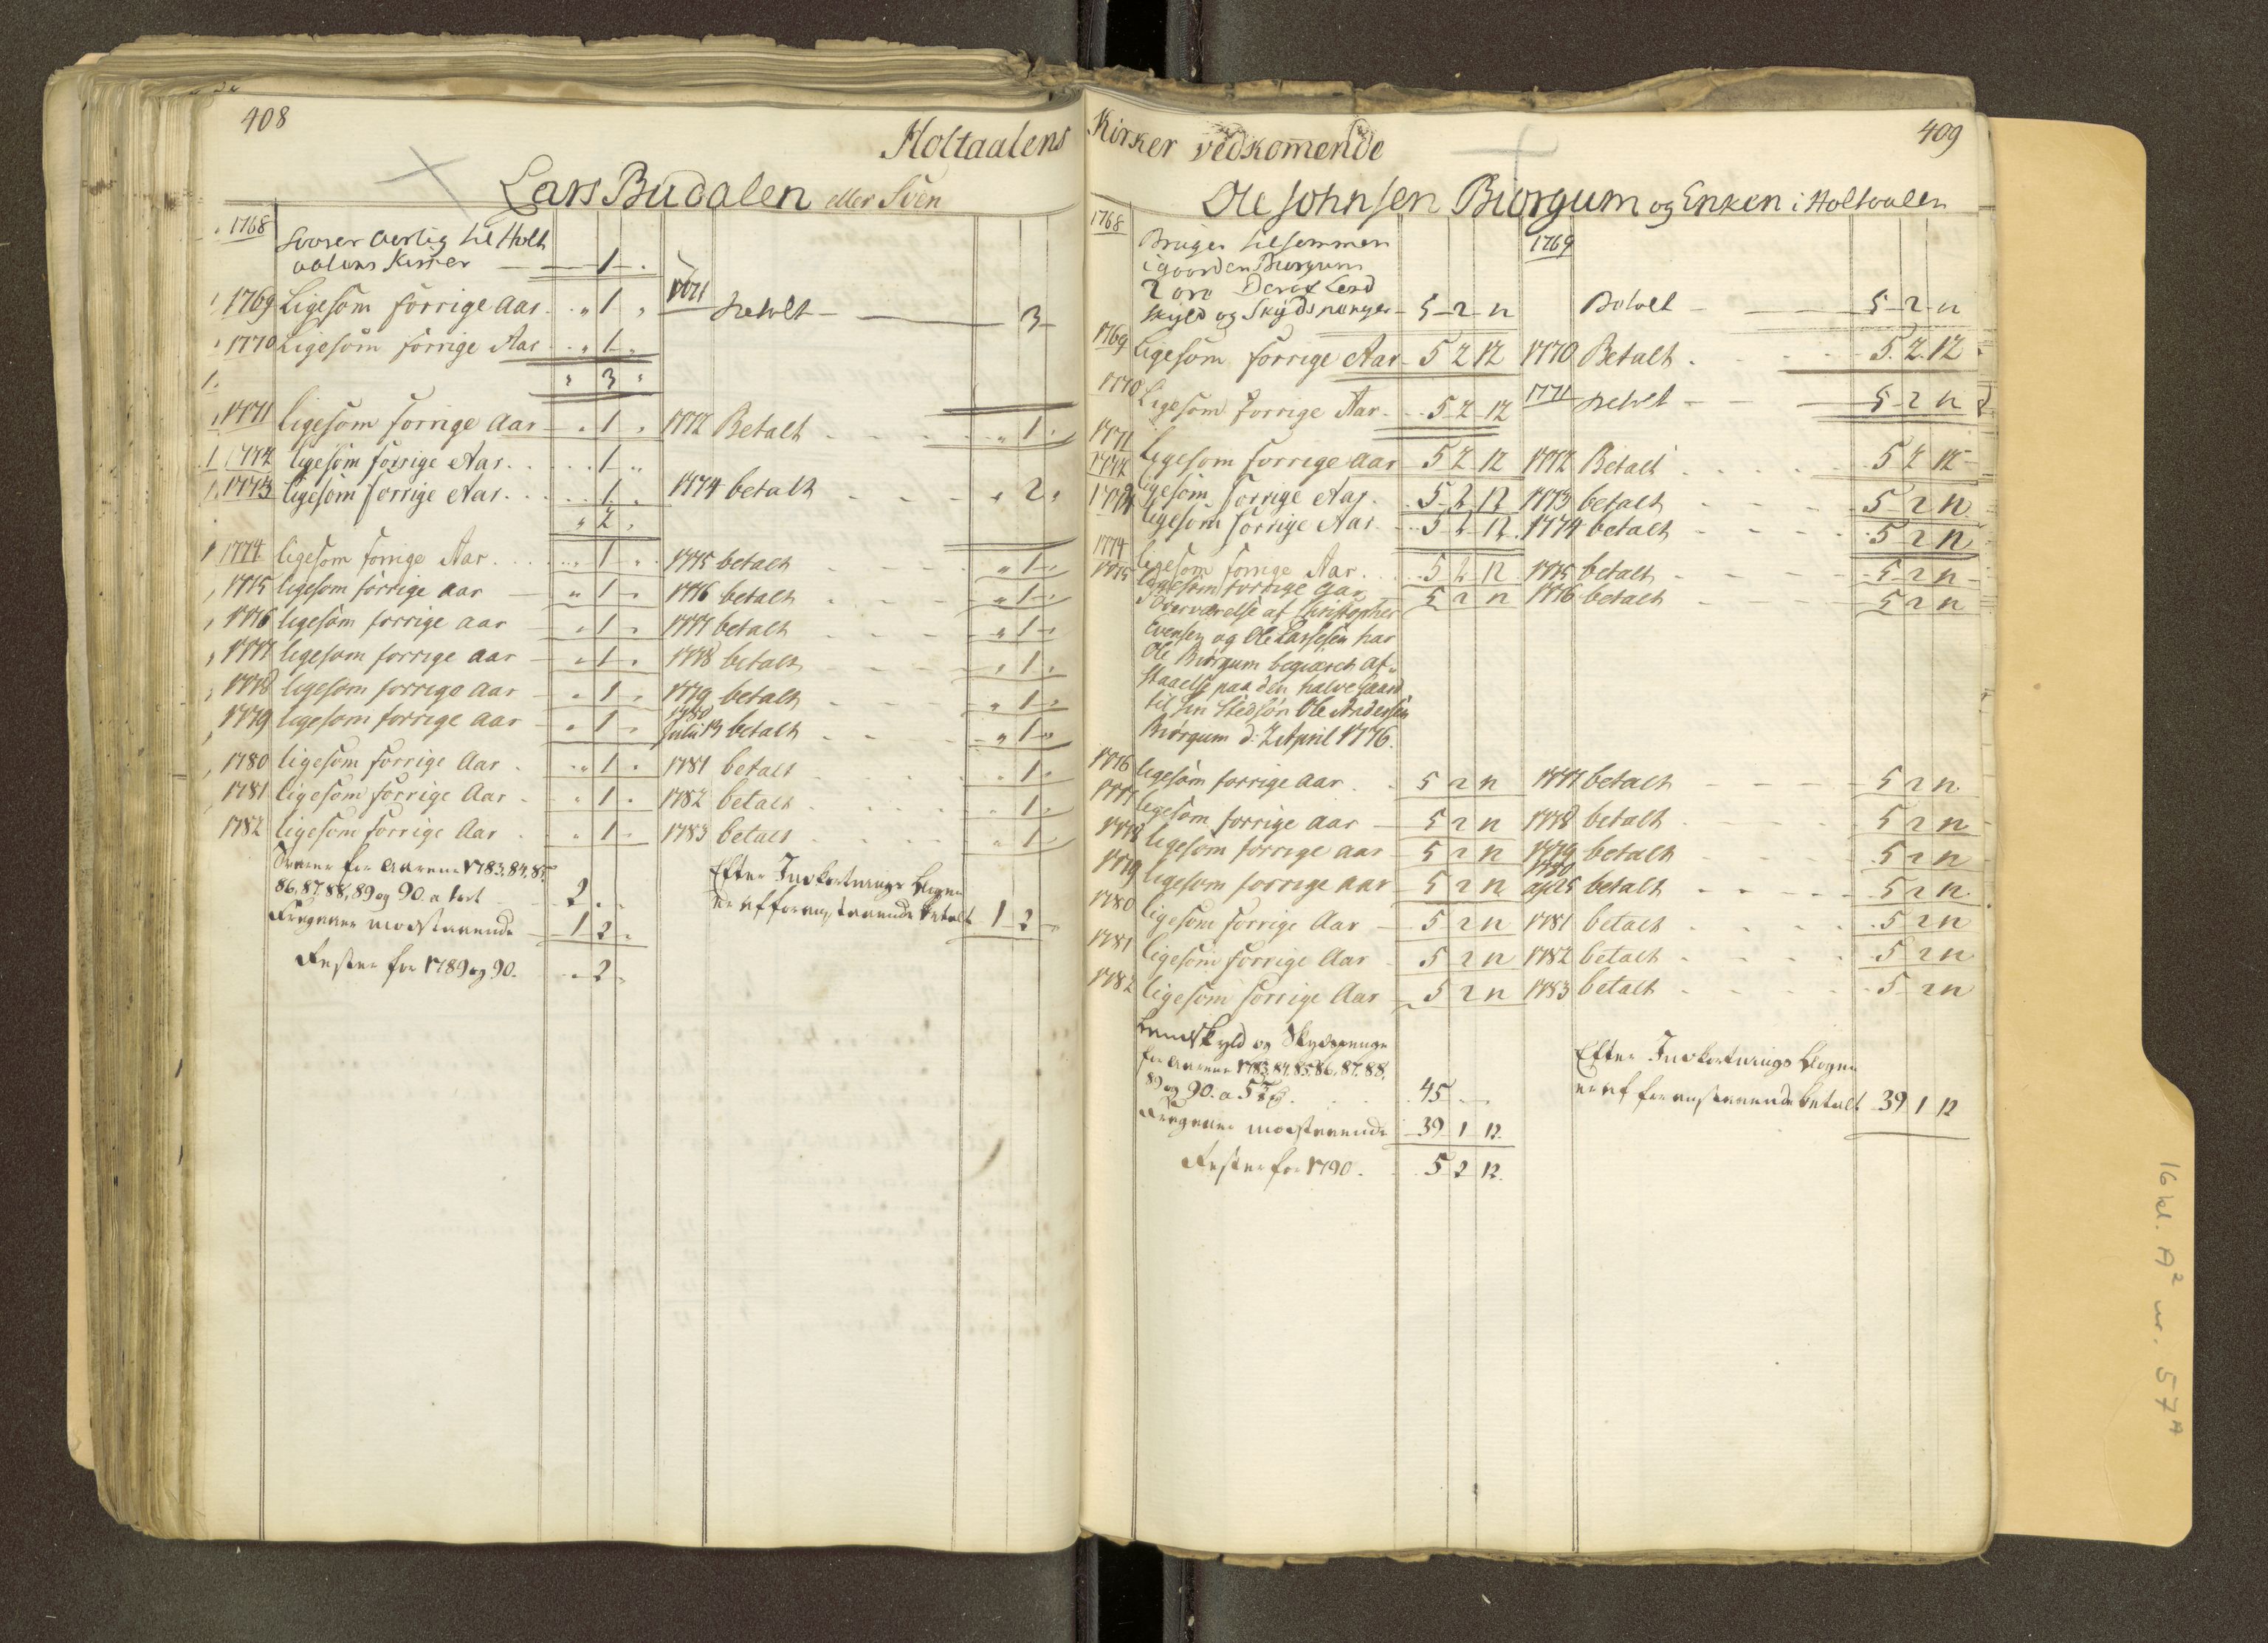 408
Holtaalens
Lars Budalen eller Sven
1768 Svarer aarlig til Holt
aalens Kirker — 1 "
1769 Ligesom forrige Aar " 1 "
1771 betalt — 3
1770 Ligesom forrige Aar " 1 "
" 3 "
1771 ligesom forrige Aar " 1 " 1772 Betalt " 1 "
1772 ligesom forrige Aar 1 "
1773 ligesom forrige Aar 1 " 1774 betalt " 2 "
" 2 "
1774 ligesom forrige Aar " 1 " 1775 betalt " 1 "
1775 ligesom forrige aar " 1 " 1776 betalt " 1 "
1776 ligesom forrige aar " 1 " 1777 betalt " 1 "
1777 ligesom forrige aar " 1 " 1778 betalt " 1 "
1778 ligesom forrige aar " 1 " 1779 betalt " 1 "
1779 ligesom forrige aar " 1 " 1780 Julii 13 betalt " 1 "
1780 ligesom forrige Aar " 1 " 1781 betalt " 1 "
1781 ligesom forrige Aar " 1 " 1782 betalt " 1 "
1782 ligesom forrige Aar " 1 " 1783 betalt " 1 "
Svarer for Aarene 1783, 84, 85,
86, 87, 88, 89 og 90 a 1 ort 2 " "
Efter Indkortnings Bogen
er af foranstaaende betalt 1 2 "
Fragaaer modstaaende 1 2 "
Rester for 1789 og 90. " 2 "
Kirker vedkomende
409
Ole Johnsen Biørgum og Enken i Holtaalen
1768 Bruger tilsammen
i gaarden Biørgum
2 øre Deraf Land
skyld og Skydspenger 5 2 12
1769 Betalt 5 2 12
1769 Ligesom forrige Aar 5 2 12 1770 Betalt 5. 2. 12
1770 Ligesom forrige Aar 5 2 12 1771 betalt 5 2 12
1771 ligesom forrige aar 5 2 12 1772 Betalt 5 2 12
1772 ligesom forrige Aar. 5 2 12 1773 betalt 5 2 12
ligesom forrige Aar 5 2 12 1774 betalt 5 2 12
1774 ligesom forrige Aar 5 2 12 1775 betalt 5 2 12
1775 ligesom forrige aar 5 2 12 1776 betalt 5 2 12
Overværelse af Christopher
Evensen og Ole Larssen har
Ole Biørgum begiæret af-
staaelse paa den halve Gaard
til sin Stedsøn Ole Andersen
Biørgum d: 2 April 1776.
1776 ligesom forrige aar 5 2 12 1777 betalt 5 2 12
1777 ligesom forrige aar 5 2 12 1778 betalt 5 2 12
1778 ligesom forrige aar 5 2 12 1779 betalt 5 2 12
1779 ligesom forrige aar 5 2 12 1780 apr 25 betalt 5 2 12
1780 ligesom forrige Aar 5 2 12 1781 betalt 5 2 12
1781 ligesom forrige Aar 5 2 12 1782 betalt 5 2 12
1782 ligesom forrige Aar 5 2 12 1783 betalt 5 2 12
Landskyld og Skydspenge
for Aarene 1783, 84, 85, 86, 87, 88,
89 og 90. a 5 45 " "
Efter Indkortnings Bogen
er af foranstaaende betalt 39 1 12
Fragaaer modstaaende 39 1 12
Rester for 1790. 5 2 12.
16 kl. A² nr. 57ᴬ